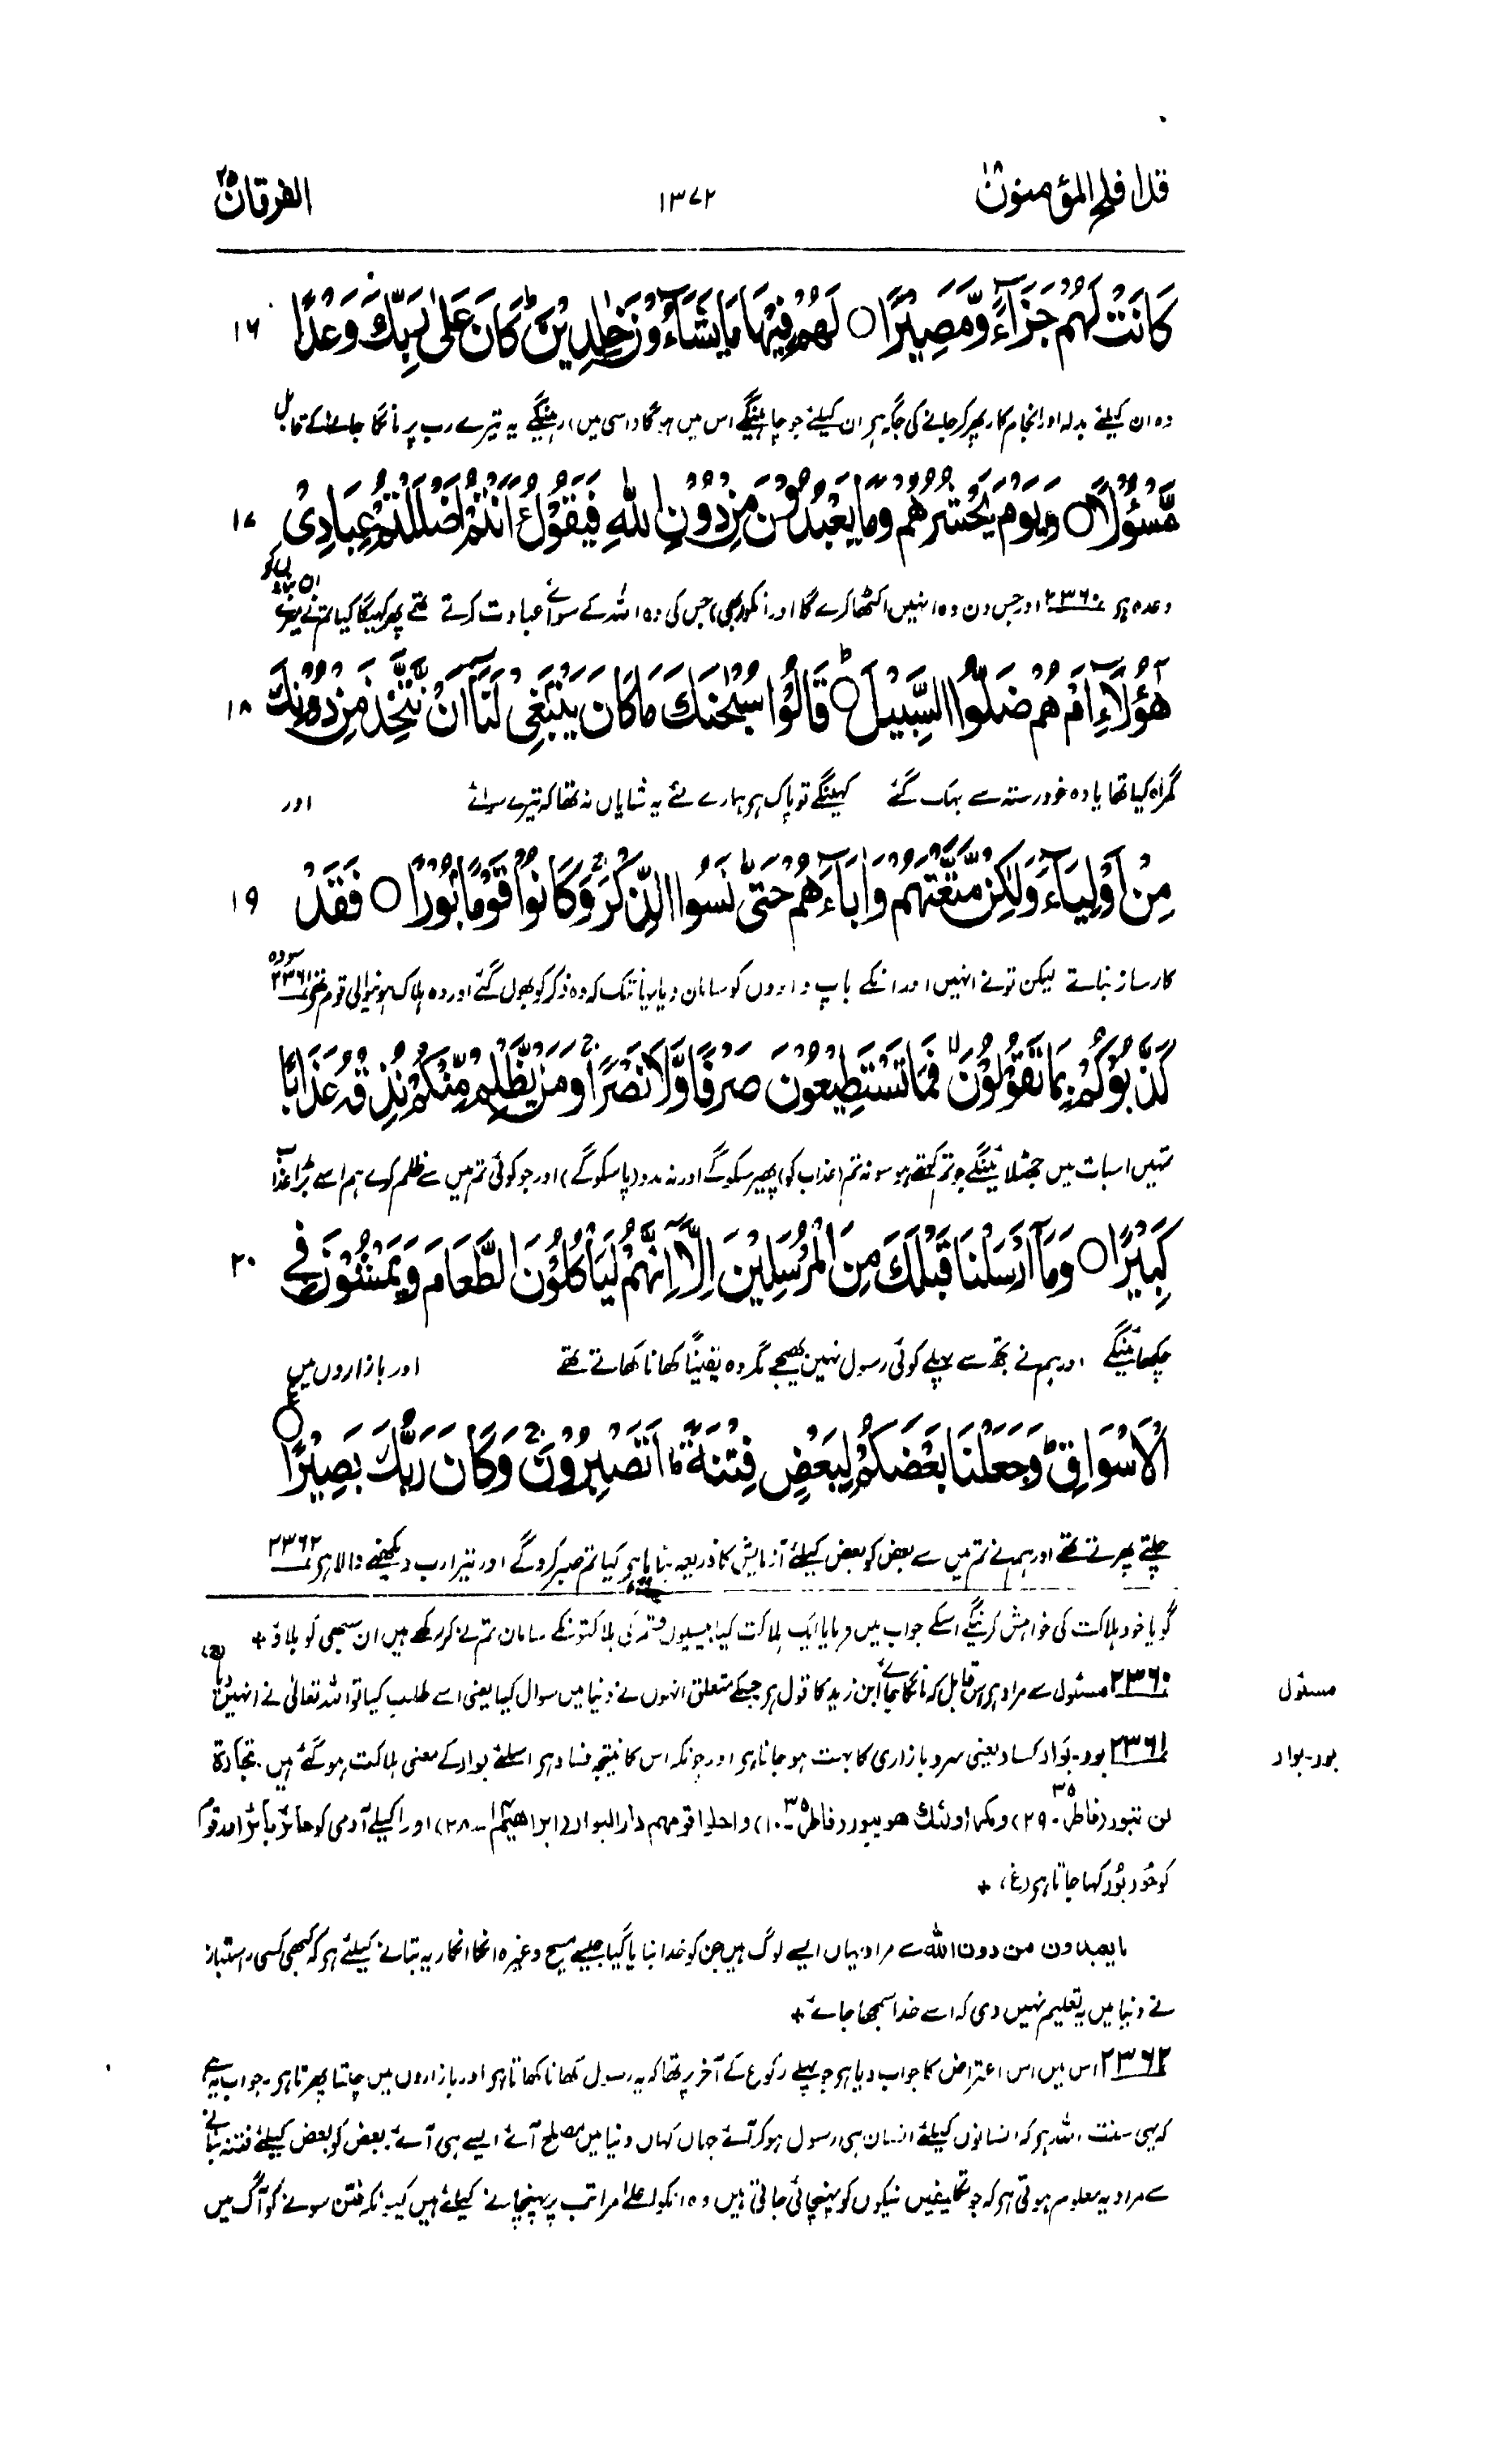 قد افلح المؤمنون ١٨
١٣٧٢
الفرقان ٢٥
كَانَتْ لَهُمْ جَزَآءً وَّمَصِيْرًا ○ لَهُمْ فِيْهَا مَا يَشَآءُوْنَ خٰلِدِيْنَ ۭ كَانَ عَلٰى رَبِّكَ وَعْدًا ١٦
وہ ان کیلئے بدلہ اور انجام کار پھر کر جانے کی جگہ ہو ان کیلئے جو چاہینگے اس میں ہوگا (اسی میں) رہینگے یہ تیرے رب پر مانگا جانے کے قابل
مَّسْئُوْلًا ○ وَيَوْمَ يَحْشُرُهُمْ وَمَا يَعْبُدُوْنَ مِنْ دُوْنِ اللّٰهِ فَيَقُوْلُ ءَاَنْتُمْ اَضْلَلْتُمْ عِبَادِيْ ١٧
وعدہ ہو ٢٣٦٠ اور جس دن وہ انہیں اکٹھا کرے گا اور انکو (بھی) جس کی وہ اللہ کے سوائے عبادت کرتے تھے پھر کہیگا کیا تم نے میرے ان بندوں کو
هٰٓؤُلَآءِ اَمْ هُمْ ضَلُّوا السَّبِيْلَ ○ قَالُوْا سُبْحٰنَكَ مَا كَانَ يَنْۢبَغِيْ لَنَآ اَنْ نَّتَّخِذَ مِنْ دُوْنِكَ ١٨
گمراہ کیا تھا یا وہ خود رستہ سے بہک گئے کہینگے تو پاک ہو ہمارے لئے یہ شایاں نہ تھا کہ تیرے سوائے اور
مِنْ اَوْلِيَآءَ وَلٰكِنْ مَّتَّعْتَهُمْ وَاٰبَآءَهُمْ حَتّٰى نَسُوا الذِّكْرَ ۚ وَكَانُوْا قَوْمًۢا بُوْرًا ○ فَقَدْ ١٩
کارساز بناتے لیکن تونے انہیں اور انکے باپ دادوں کو سامان دیا یہانتک کہ وہ ذکر کو بھول گئے اور وہ ہلاک ہونیوالی قوم تھی ٢٣٦١ سو وہ
كَذَّبُوْكُمْ بِمَا تَقُوْلُوْنَ ۙ فَمَا تَسْتَطِيْعُوْنَ صَرْفًا وَّلَا نَصْرًا ۚ وَمَنْ يَّظْلِمْ مِّنْكُمْ نُذِقْهُ عَذَابًا
تمہیں اس بات میں جھٹلا ئینگے جو تم کہتے ہو سو نہ تم (عذاب کو) پھیر سکوگے اور نہ مدد (پا سکوگے) اور جو کوئی تم میں سے ظلم کرے ہم اسے بڑا عذاب
كَبِيْرًا ○ وَمَآ اَرْسَلْنَا قَبْلَكَ مِنَ الْمُرْسَلِيْنَ اِلَّآ اِنَّهُمْ لَيَاْكُلُوْنَ الطَّعَامَ وَيَمْشُوْنَ فِي ٢٠
چکھائینگے اور ہم نے تجھ سے پہلے کوئی رسول نہیں بھیجے مگر وہ یقیناً کھانا کھاتے تھے اور بازاروں میں
الْاَسْوَاقِ ۭ وَجَعَلْنَا بَعْضَكُمْ لِبَعْضٍ فِتْنَةً ۭ اَتَصْبِرُوْنَ ۚ وَكَانَ رَبُّكَ بَصِيْرًا ○ ع
چلتے پھرتے تھے اور ہم نے تم میں سے بعض کو بعض کیلئے آزمایش کا ذریعہ بنایا ہو کیا تم صبر کروگے اور تیرا رب دیکھنے والا ہو ٢٣٦٢
گویا خود ہلاکت کی خواہش کرینگے اسکے جواب میں فرمایا ایک ہلاکت کیا بیسیوں قسم کی ہلاکتونکے سامان تم نے کر رکھے ہیں ان سبھی کو بلاؤ +
مسئول
٢٣٦٠ مسئول سے مراد ہو اس قابل کہ مانگا جائے ابن زید کا قول ہو جسکے متعلق انہوں نے دنیا میں سوال کیا یعنی اسے طلب کیا تو اللہ تعالیٰ نے انہیں دیا (ج)
بور۔ بوار
٢٣٦١ بور۔ بَوَار کساد یعنی سرد بازاری کا بہت ہو جانا ہو اور چونکہ اس کا نتیجہ فساد ہو اسلئے بوار کے معنی ہلاکت ہوگئے ہیں۔ تجارة
لن تبور (فاطر ٣٥ ۔ ٢٩) ومکر اولئك هو یبور (فاطر ٣٥ ۔ ١٠) واحلوا قومهم دار البوار (ابراهیم ١٤ ۔ ٢٨) اور اکیلے آدمی کو حائر بائر اور قوم
کو حُور بُور کہا جاتا ہو (غ) +
ما یعبدون من دون الله سے مراد یہاں ایسے لوگ ہیں جن کو خدا بنایا گیا جیسے مسیح وغیرہ انکا انکار یہ بتانے کیلئے ہو کہ کبھی کسی راستباز
نے دنیا میں یہ تعلیم نہیں دی کہ اسے خدا سمجھا جائے +
٢٣٦٢ اس میں اس اعتراض کا جواب دیا ہو جو پہلے رکوع کے آخر پر تھا کہ یہ رسول کھانا کھاتا ہو اور بازاروں میں چلتا پھرتا ہو۔ جواب یہ ہے
کہ یہی سنت اللہ ہو کہ انسانوں کیلئے انسان ہی رسول ہوکر آئے جہاں کہاں دنیا میں مصلح آئے ایسے ہی آئے۔ بعض کو بعض کیلئے فتنہ بنانے
سے مراد یہ معلوم ہوتی ہو کہ جو تکلیفیں نیکوں کو پہنچائی جاتی ہیں وہ انکو اعلےٰ مراتب پر پہنچانے کیلئے ہیں کیونکہ فتن سونے کو آگ میں